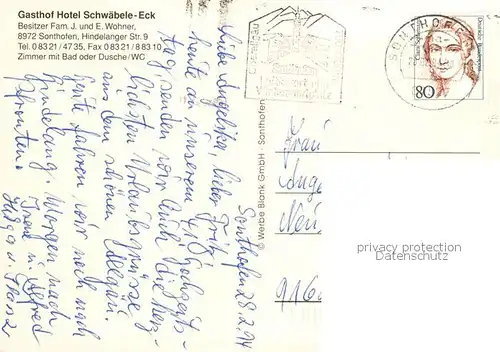 Gasthof Hotel Schwäbele-Eck
Besitzer Fam. J. und E. Wohner,
8972 Sonthofen, Hindelanger Str. 9
Tel. 0 83 21 / 47 35, Fax 0 83 21 / 8 83 10
Zimmer mit Bad oder Dusche/WC
Sonthofen 28.2.94
Liebe Angelika, lieber Fritz
heute an unserem 48 Hochzeits-
tag, senden wir Euch die herz-
lichsten Urlaubsgrüsse
aus dem schönen Allgäu.
heute fahren wir noch nach
Hindelang. Morgen nach
Pfronten.
Irene u. Alfred
Helga u. Franz
© Werbe Blank GmbH - Sonthofen
SONTHOFEN
80
Frau
Ange
Neu
916
privacy protection